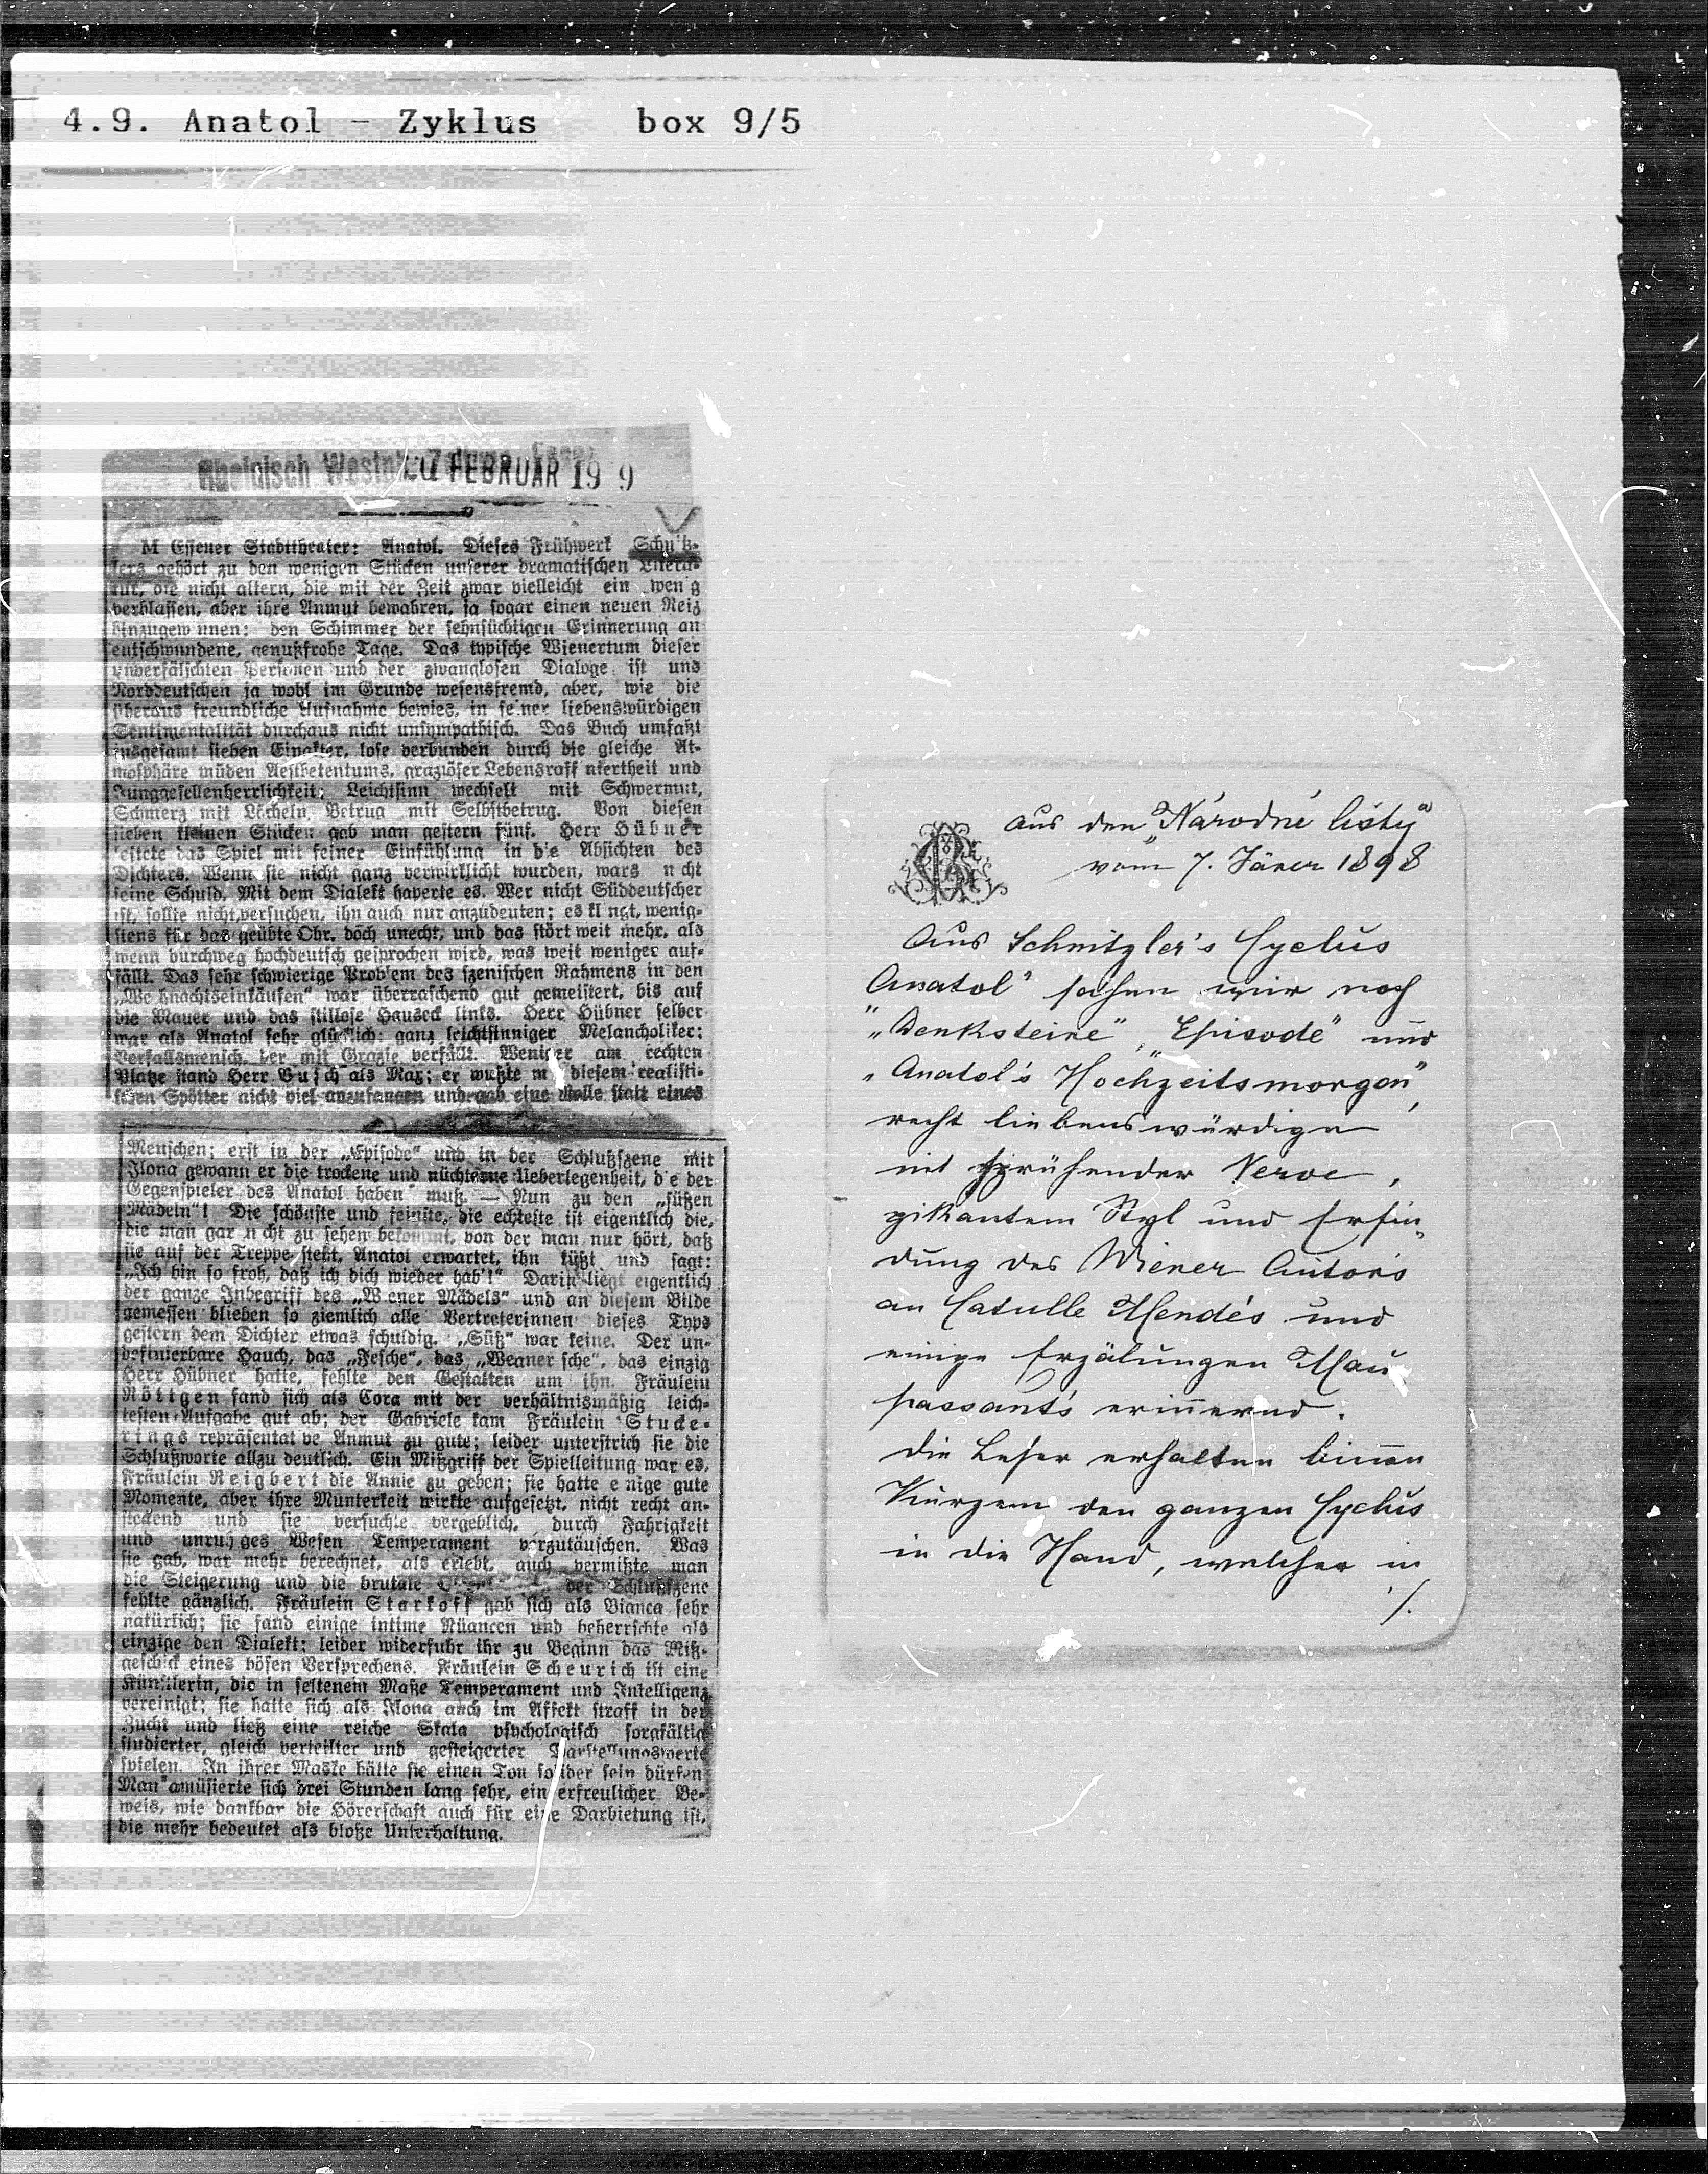 4.9. Anatol - Zyklus box 9/5
Rheinisch Westph. Zeitung, Essen
FEBRUAR 19 9
M Essener Stadttheater: Anatol. Dieses Frühwerk Schnitz-
lers gehört zu den wenigen Stücken unserer dramatischen Litera-
tur, die nicht altern, die mit der Zeit zwar vielleicht ein wenig
verblassen, aber ihre Anmut bewahren, ja sogar einen neuen Reiz
hinzugewinnen: den Schimmer der sehnsüchtigen Erinnerung an
entschwundene, genußfrohe Tage. Das typische Wienertum dieser
unverfälschten Personen und der zwanglosen Dialoge ist uns
Norddeutschen ja wohl im Grunde wesensfremd, aber, wie die
überaus freundliche Aufnahme bewies, in seiner liebenswürdigen
Sentimentalität durchaus nicht unsympathisch. Das Buch umfaßt
insgesamt sieben Einakter, lose verbunden durch die gleiche At-
mosphäre müden Aesthetentums, graziöser Lebensraffiniertheit und
Junggesellenherrlichkeit; Leichtsinn wechselt mit Schwermut,
Schmerz mit Lächeln, Betrug mit Selbstbetrug. Von diesen
sieben kleinen Stücken gab man gestern fünf. Herr Hübner
leitete das Spiel mit feiner Einfühlung in die Absichten des
Dichters. Wenn sie nicht ganz verwirklicht wurden, wars nicht
seine Schuld. Mit dem Dialekt haperte es. Wer nicht Süddeutscher
ist, sollte nicht versuchen, ihn auch nur anzudeuten; es klingt, wenig-
stens für das geübte Ohr, doch unecht, und das stört weit mehr, als
wenn durchweg hochdeutsch gesprochen wird, was weit weniger auf-
fällt. Das sehr schwierige Problem des szenischen Rahmens in den
„Weihnachtseinkäufen“ war überraschend gut gemeistert, bis auf
die Mauer und das stillose Hauseck links. Herr Hübner selber
war als Anatol sehr glücklich: ganz leichtsinniger Melancholiker;
Verfallsmensch, der mit Grazie verfällt. Weniger am rechten
Platze stand Herr Busch als Max; er wußte mit diesem realisti-
schen Spötter nicht viel anzufangen und gab eine Rolle statt eines
Menschen; erst in der „Episode“ und in der Schlußszene mit
Ilona gewann er die trockene und nüchterne Ueberlegenheit, die der
Gegenspieler des Anatol haben muß. — Nun zu den „süßen
Mädeln“! Die schönste und feinste, die echteste ist eigentlich die,
die man gar nicht zu sehen bekommt, von der man nur hört, daß
sie auf der Treppe steht, Anatol erwartet, ihn küßt und sagt:
„Ich bin so froh, daß ich dich wieder hab'!“ Darin liegt eigentlich
der ganze Inbegriff des „Wiener Mädels“ und an diesem Bilde
gemessen blieben so ziemlich alle Vertreterinnen dieses Typs
gestern dem Dichter etwas schuldig. „Süß“ war keine. Der un-
definierbare Hauch, das „Fesche“, das „Weanerische“, das einzig
Herr Hübner hatte, fehlte den Gestalten um ihn. Fräulein
Röttgen fand sich als Cora mit der verhältnismäßig leich-
testen Aufgabe gut ab; der Gabriele kam Fräulein Stucke-
rings repräsentative Anmut zu gute; leider unterstrich sie die
Schlußworte allzu deutlich. Ein Mißgriff der Spielleitung war es,
Fräulein Reigbert die Annie zu geben; sie hatte einige gute
Momente, aber ihre Munterkeit wirkte aufgesetzt, nicht recht an-
steckend und sie versuchte vergeblich, durch Fahrigkeit
und unruhiges Wesen Temperament vorzutäuschen. Was
sie gab, war mehr berechnet, als erlebt, auch vermißte man
die Steigerung und die brutale der Schlußszene
fehlte gänzlich. Fräulein Starkoff gab sich als Bianca sehr
natürlich; sie fand einige intime Nüancen und beherrschte als
einzige den Dialekt; leider widerfuhr ihr zu Beginn das Miß-
geschick eines bösen Versprechens. Fräulein Scheurich ist eine
Künstlerin, die in seltenem Maße Temperament und Intelligenz
vereinigt; sie hatte sich als Ilona auch im Affekt straff in der
Zucht und ließ eine reiche Skala psychologisch sorgfältig
studierter, gleich verteilter und gesteigerter Darstellungswerte
spielen. In ihrer Maske hätte sie einen Ton solider sein dürfen.
Man amüsierte sich drei Stunden lang sehr, ein erfreulicher Be-
weis, wie dankbar die Hörerschaft auch für eine Darbietung ist,
die mehr bedeutet als bloße Unterhaltung.
Aus den „Národné listy“
vom 7. Jäner 1898
Aus Schnitzler's Cyclus
Anatol' sahen wir noch
„Denksteine“, „Episode“ und
„Anatol's Hochzeitsmorgen“,
recht liebenswürdige
mit sprühender Verve,
pikantem Styl und Erfin-
dung des Wiener Autors
an Catulle Mendés und
einige Erzälungen Mau
passant's erinnernd.
Die Leser erhalten binnen
Kurzem den ganzen Cyclus
in die Hand, welcher in
./.